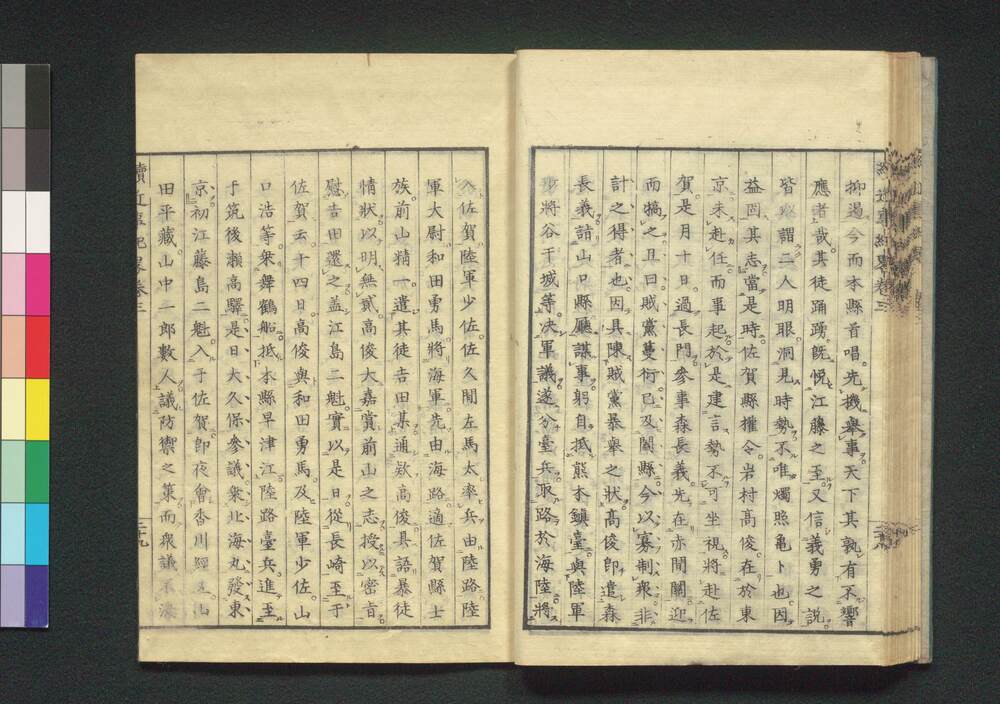 抑過今而本縣首唱先機舉事天下其孰有不響
應者哉其徒踊躍旣悦江藤之至又信義勇之説
皆謂二人明眼洞見時勢不唯燭照亀卜也因
益固其志當是時佐賀縣權令岩村高俊在於東
京未赴任而事起於是建言勢不可坐視將赴佐
賀是月十日過長門參事森長義先在赤間關迎
而犒之且曰賊黨蔓衍已及闔縣今以寡制衆非
計之得者也因具陳賊黨暴舉之狀高俊即遣森
長義請山口縣廳謀事躬自抵熊本鎮臺與陸軍
少將谷干城等決軍議遂分臺兵取路於海陸將
入佐賀陸軍少佐佐久間左馬太率兵由陸路陸
軍大尉和田勇馬將海軍先由海路適佐賀縣士
族前山精一遣其徒吉田某通欵高俊具語暴徒
情狀以明無貳高俊大嘉賞前山之志授以密旨
慰吉田還之盖江島二魁實以是日從長崎至于
佐賀云十四日高俊與和田勇馬及陸軍少佐山
口浩等乗舞鶴船抵本縣早津江陸路臺兵進至
于筑後瀬高驛是日大久保參議乗北海丸發東
京初江藤島二魁入于佐賀即夜會香川
田平藏山中一郎數人議防禦之策而衆議不
續 紀畧卷三
二十九